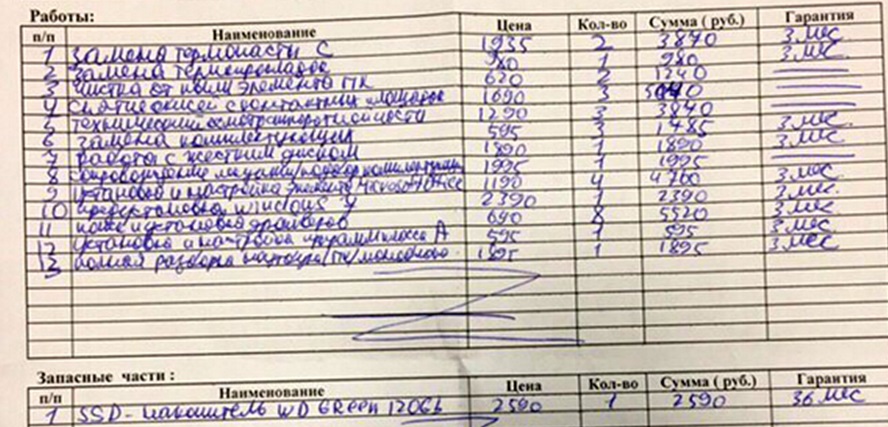 Работы:
п/п Наименование Цена Кол-во Сумма ( руб.) Гарантия
1 Замена термопасты С 1935 2 3870 3 мес
2 Замена термопрокладок 980 1 980 3 мес
3 Чистка от пыли элемента ПК 620 2 1240
4 Снятие окисей с контактных площадок 1690 3
5 Технический осмотр 1290 3
6 Замена комплектующих 595 3 1485 3 мес
7 Работа с жестким диском 1890 1 1890 3 мес
8 1995 1 1995
9 Установка и настройка Microsoft Office 1190 4 4760 3 мес
10 windows 7 2390 1 2390 3 мес
11 поиск и установка драйверов 690 8 5520 3 мес
12 Установка и настройка программ класса А 595 1 595 3 мес
13 полная разборка ноутбука/ПК/моноблока 1895 1 1895 3 мес
Запасные части :
п/п Наименование Цена Кол-во Сумма ( руб.) Гарантия
1 SSD-накопитель WD GReen 120Gb 2590 1 2590 36 мес